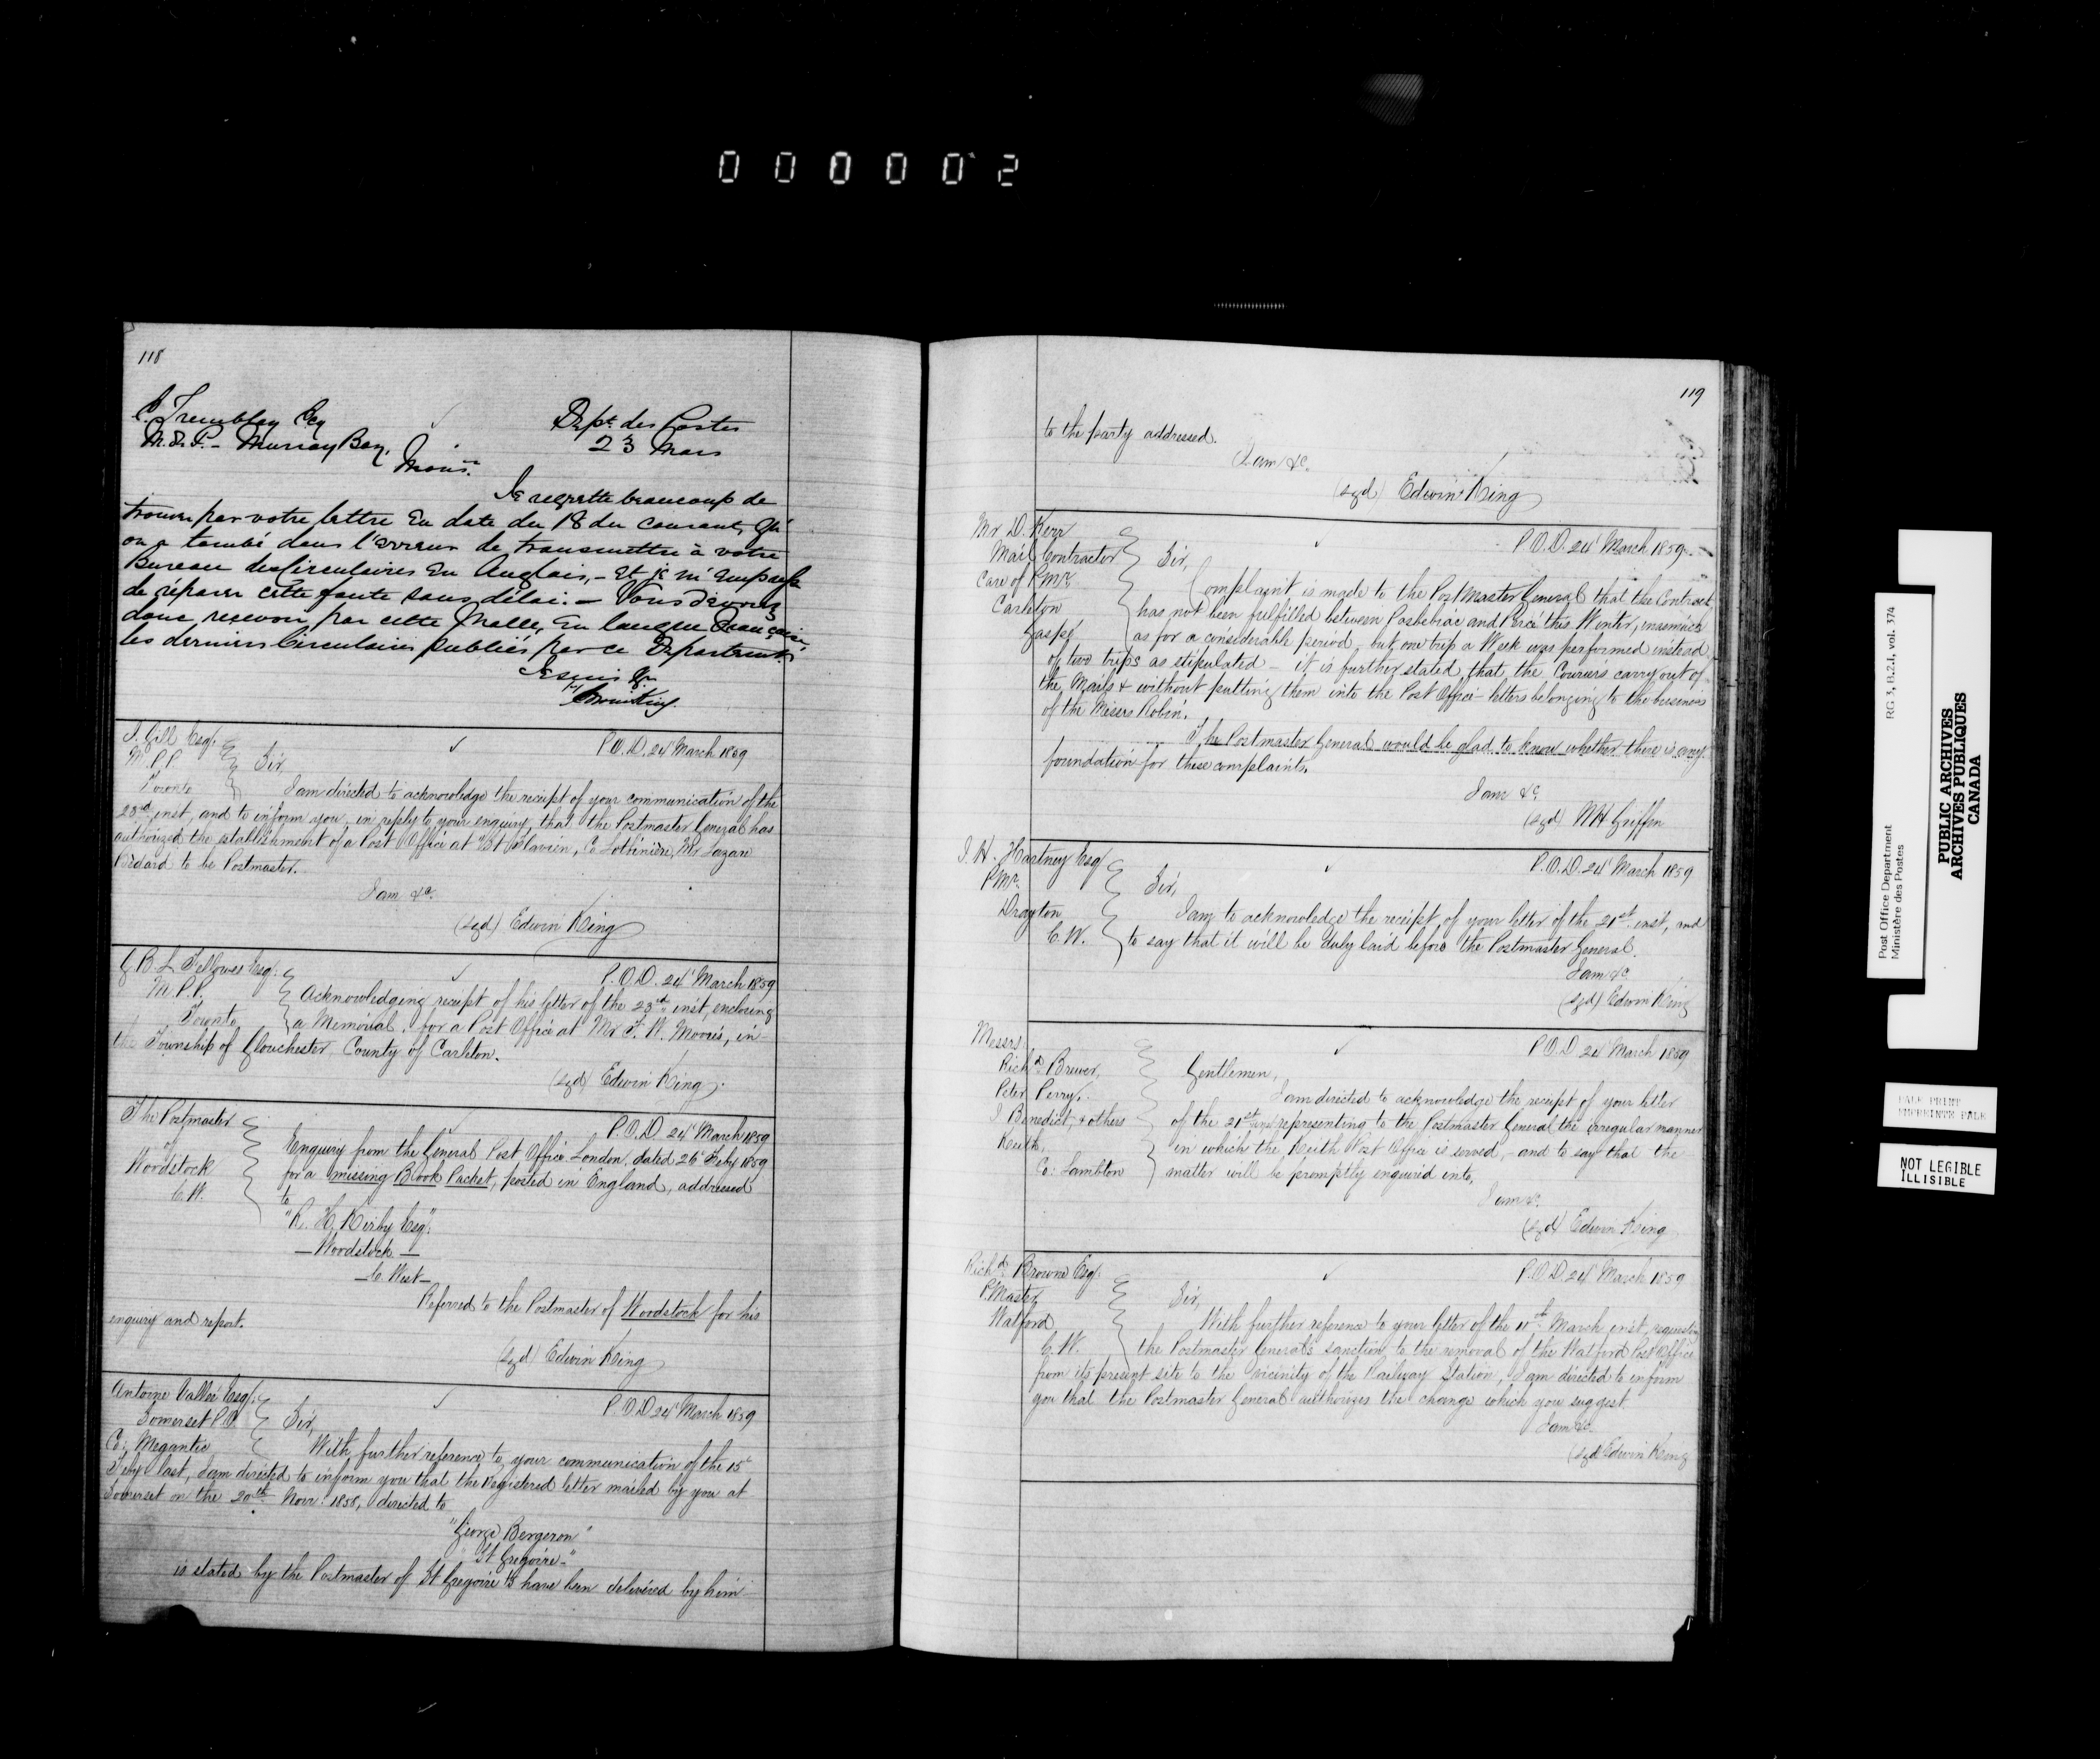 000002
118
C. Tremblay Esq
M.P.P. - Murray Bay,
Dept. des Postes
23 Mars
Monsr.
Je regrette beaucoup de
trouver par votre lettre en date du 18 du courant, qu'
on a tombé dans l'erreur de transmettre à votre
Bureau des Circulaires en Anglais, - et je m'empresse
de réparer cette faute sans délai. - Vous devrez
donc recevoir, par cette Malle, en langue Française,
les derniers Circulaires publiés par ce Département.
Je suis &c
Edwin King
I. Gill Esq.
M.P.P.
Toronto
P.O.D. 24 March 1859
Sir,
I am directed to acknowledge the receipt of your communication of the
23rd inst, and to inform you, in reply to your enquiry, that the Postmaster General has
authorized the establishment of a Post Office at "St Flavien, Co Lotbinière, Mr Lazare
Bedard to be Postmaster.
I am &c.
(sgd) Edwin King
G. B. L. Fellowes Esq.
M.P.P.
Toronto
P.O.D. 24 March 1859
Acknowledging receipt of his letter of the 23rd inst, enclosing
a Memorial, for a Post Office at Mr F. W. Morris, in
the Township of Glouchester, County of Carleton.
(sgd) Edwin King
The Postmaster
of
Woodstock
C.W.
P.O.D. 24 March 1859
Enquiry from the General Post Office London, dated 26 Feby 1859
for a missing Book Packet, posted in England, addressed
to
"R. H. Kirby Esq".
- Woodstock -
- C. West -
Referred to the Postmaster of Woodstock for his
enquiry and report.
(sgd) Edwin King
Antoine Vallée Esq.
Somerset P.O.
Co: Megantic
P.O.D 24 March 1859
Sir,
With further reference to your communication of the 15
Feby last, I am directed to inform you that the Registered letter mailed by you at
Somerset on the 20th Novr 1858, directed to
"George Bergeron"
"St Gregoire -"
is stated by the Postmaster of St Gregoire to have been delivered by him
119
to the party addressed.
I am &c.
(sgd) Edwin King
Mr D. Kerr
Mail Contractor
Care of P.Mr.
Carleton
Gaspé
P.O.D. 24 March 1859
Sir,
Complaint is made to the Post Master General that the Contract
has not been fulfilled between Pasbebiac and Percé this Winter, inasmuch
as for a considerable period but one trip a Week was performed instead
of two trips as stipulated - it is further stated, that the Couriers carry out of
the Mails & without putting them into the Post Office letters belonging to the business
of the Messrs Robin.
The Postmaster General would be glad to know whether there is any
foundation for these complaints.
I am &c.
(sgd) WH Griffin
I. H. Hartney Esq
P.Mr.
Drayton
C.W.
P.O.D. 24 March 1859
Sir,
I am to acknowledge the receipt of your letter of the 21st inst, and
to say that it will be duly laid before the Postmaster General.
I am &c
(sgd) Edwin King
Messrs
Richd Brewer,
Peter Perry,
I Benedict, & others
Keith,
Co: Lambton
P.O.D 24 March 1859
Gentlemen,
I am directed to acknowledge the receipt of your letter
of the 21st inst representing to the Postmaster General the irregular manner
in which the Keith Post Office is served, and to say that the
matter will be promptly enquired into.
I am &c.
(sgd) Edwin King
Richd Browne Esq.
P.Master
Watford
C.W.
P.O.D. 24 March 1859
Sir,
With further reference to your letter of the 11th March inst, requesting
the Postmaster General's sanction to the removal of the Watford Post Office
from its present site to the vicinity of the Railway Station, I am directed to inform
you that the Postmaster General authorizes the change which you suggest.
I am &c.
(sgd Edwin King
Post Office Department
Ministère des Postes
RG 3, B.2.1, vol. 374
PUBLIC ARCHIVES
ARCHIVES PUBLIQUES
CANADA
PALE PRINT
EMPREINTE PALE
NOT LEGIBLE
ILLISIBLE